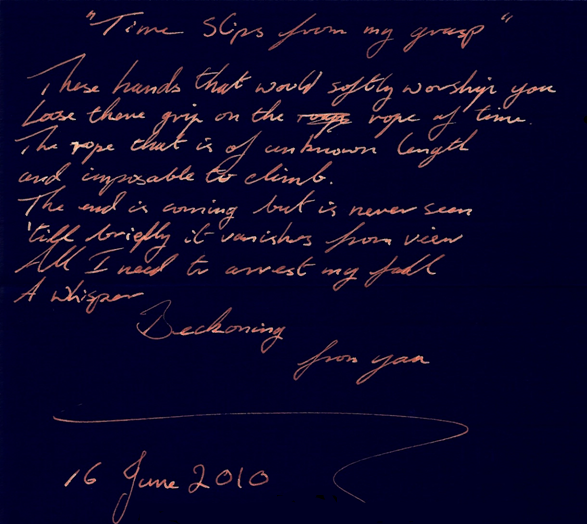 "Time slips from my grasp"
These hands that would softly worship you
Loose there grip on the rope of time.
The rope that is of unknown length
and imposable to climb.
The end is coming but is never seen
'till briefly it vanishes from view
All I need to arrest my fall
A whisper
Beckoning
from you
16 June 2010